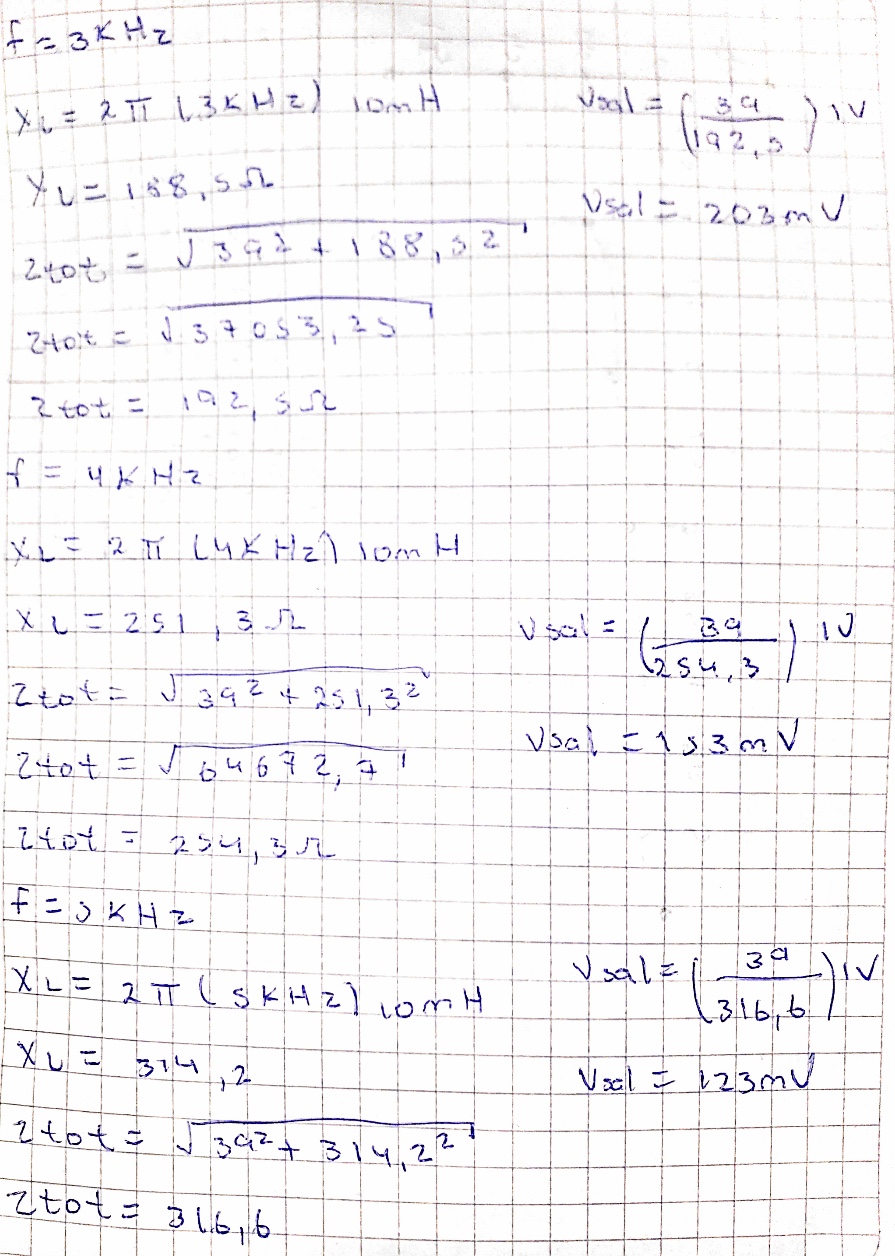 f = 3KHz
XL = 2π (3KHz) 10mH
XL = 188,5Ω
Ztot = √39² + 188,5²
Ztot = √37053,25
Ztot = 192,5Ω
Vsal = (39/192,5) 1V
Vsal = 203mV
f = 4KHz
XL = 2π (4KHz) 10mH
XL = 251,3Ω
Ztot = √39² + 251,3²
Ztot = √64672,7
Ztot = 254,3Ω
Vsal = (39/254,3) 1V
Vsal = 153mV
f = 5KHz
XL = 2π (5KHz) 10mH
XL = 314,2
Ztot = √39² + 314,2²
Ztot = 316,6
Vsal = (39/316,6) 1V
Vsal = 123mV